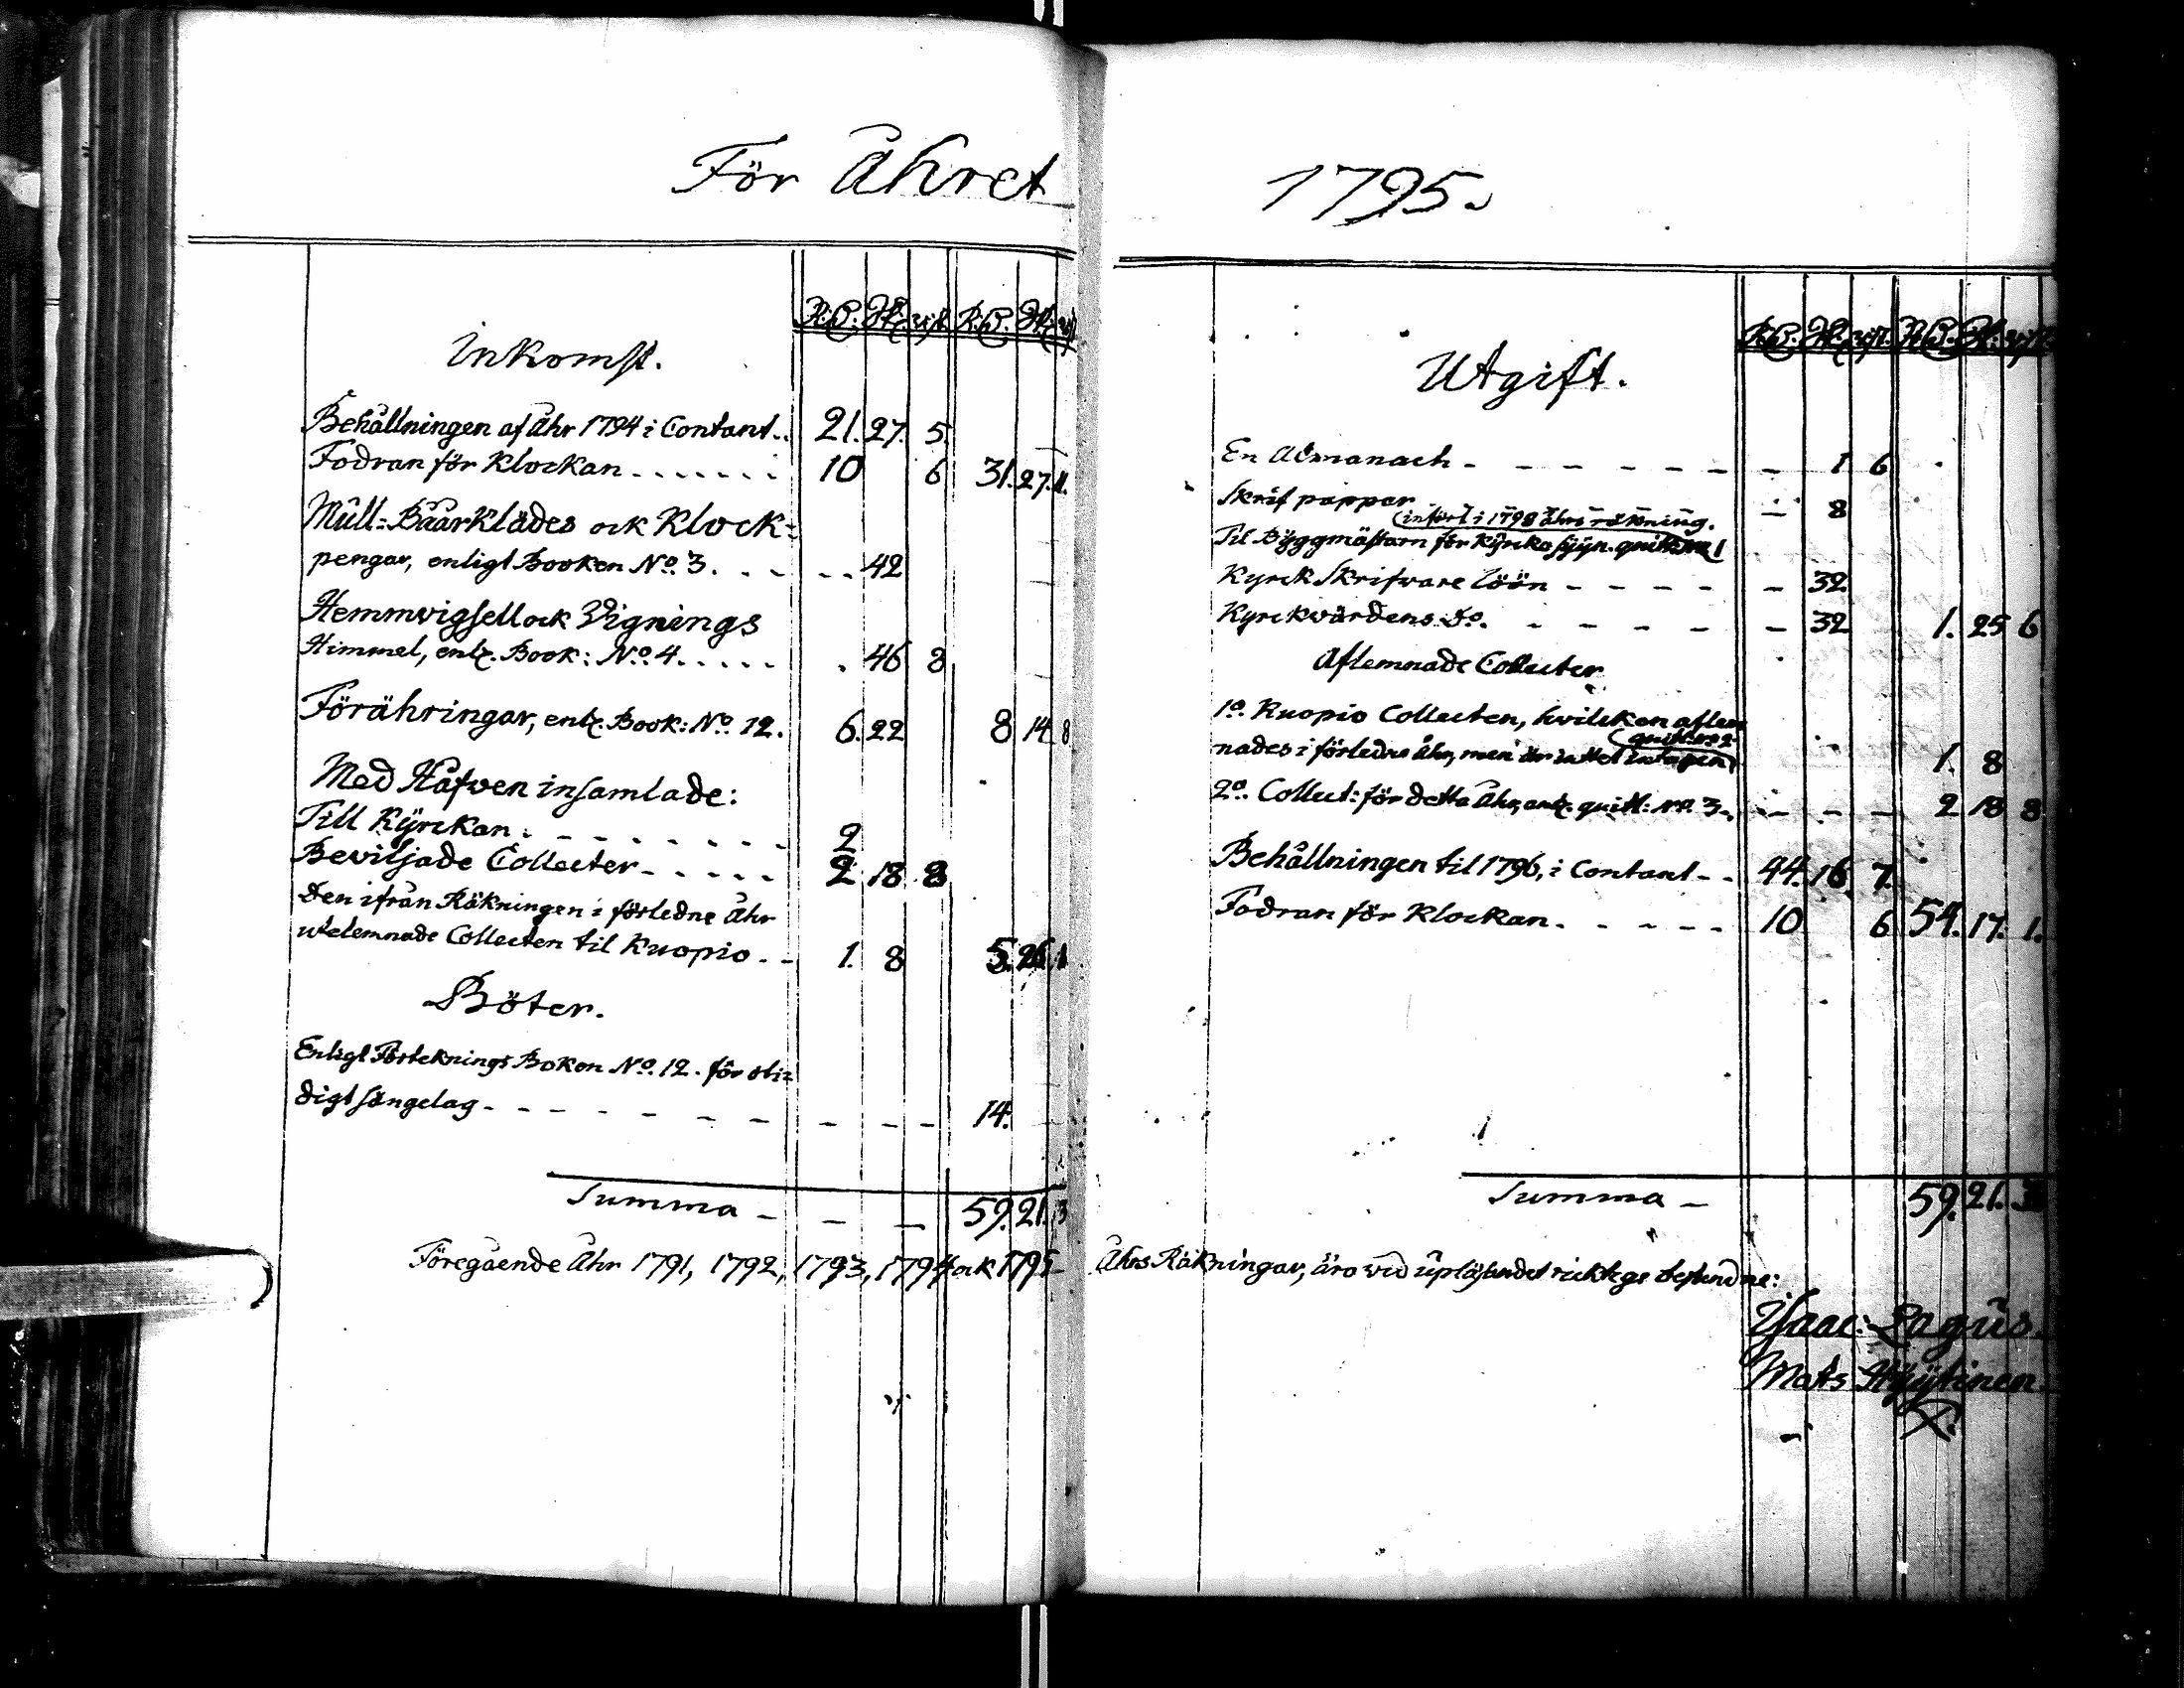 För Åhret
R:D: sk: rst. R.D. sk: rst
Inkomst.
Behållningen af Åhr 1794 i Contant.. 21. 27. 5.
Fodran för Klockan . . . . . . . 10 6 31. 27. 11.
Mull= Båår Klädes ock Klock=
pengar, enligt Booken No. 3. . - - . . 42
Hemmvigsell ock Vignings
Himmel, enl. Book: No. 4. . . . . . 46 8
Förähringar, enl. Book: No. 12. 6. 22 8 14 8
Med Håfven insamlade:
Till Kyrckan . - - - - - - - - 2
Beviljade Collecter - . . . . 2 18 8
Den ifrån Räkningen i förledne Åhr
utelemnade Collecten til Kuopio . - 1. 8 5. 26.
Böter.
Enligt Förteknings Boken No. 12. för oti=
digt sängelag - - - - - - - - - - - - 14.
Summa - - - 59. 21. 3
Föregående Åhr 1791, 1792, 1793, 1794 ock 1795
1795.
R.D: sk: rst. R.D. sk: rst.
Utgift.
En Almanach - - - - - - - - 1 6
Skrif papper - 8
(infört i 1798 åhrs räkning.
Til Byggmästarn för Kyrko syyn.
Kyrck Skrifware löön - - - - - 32.
Kyrckvärdens do. - - - - - 32 1. 25 6
Aflemnade Collecter
1o. Kuopio Collecten, hvilcken aflem
nades i förledne åhr, men är 1. 8
2o. Collect: för detta Åhr, enl. quitt: No. 3. - - - 2 18 8
Behållningen til 1796, i Contant - . 44. 16. 7.
Fodran för Klockan . - - - - 10 6 54. 17. 1.
Summa - 59. 21. 3
Åhrs Räkningar, äro vid upläsandet ricktiga befundne:
Isaac: Lagus.
Mats Hyytinen